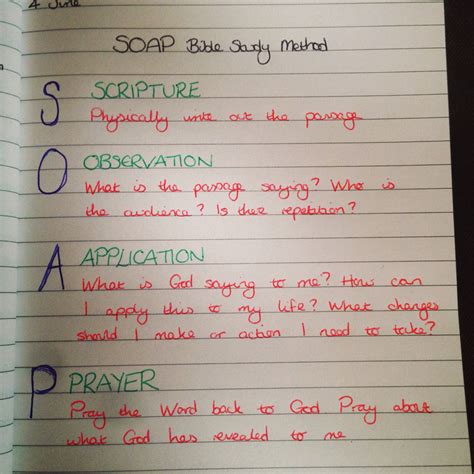 4 June
SOAP Bible Study Method
S SCRIPTURE
Physically write out the passage
O OBSERVATION
What is the passage saying? Who is
the audience? Is there repetation?
A APPLICATION
What is God saying to me? How can
I apply this to my life? What changes
should I make or action I need to take?
P PRAYER
Pray the Word back to God. Pray about
what God has revealed to me.